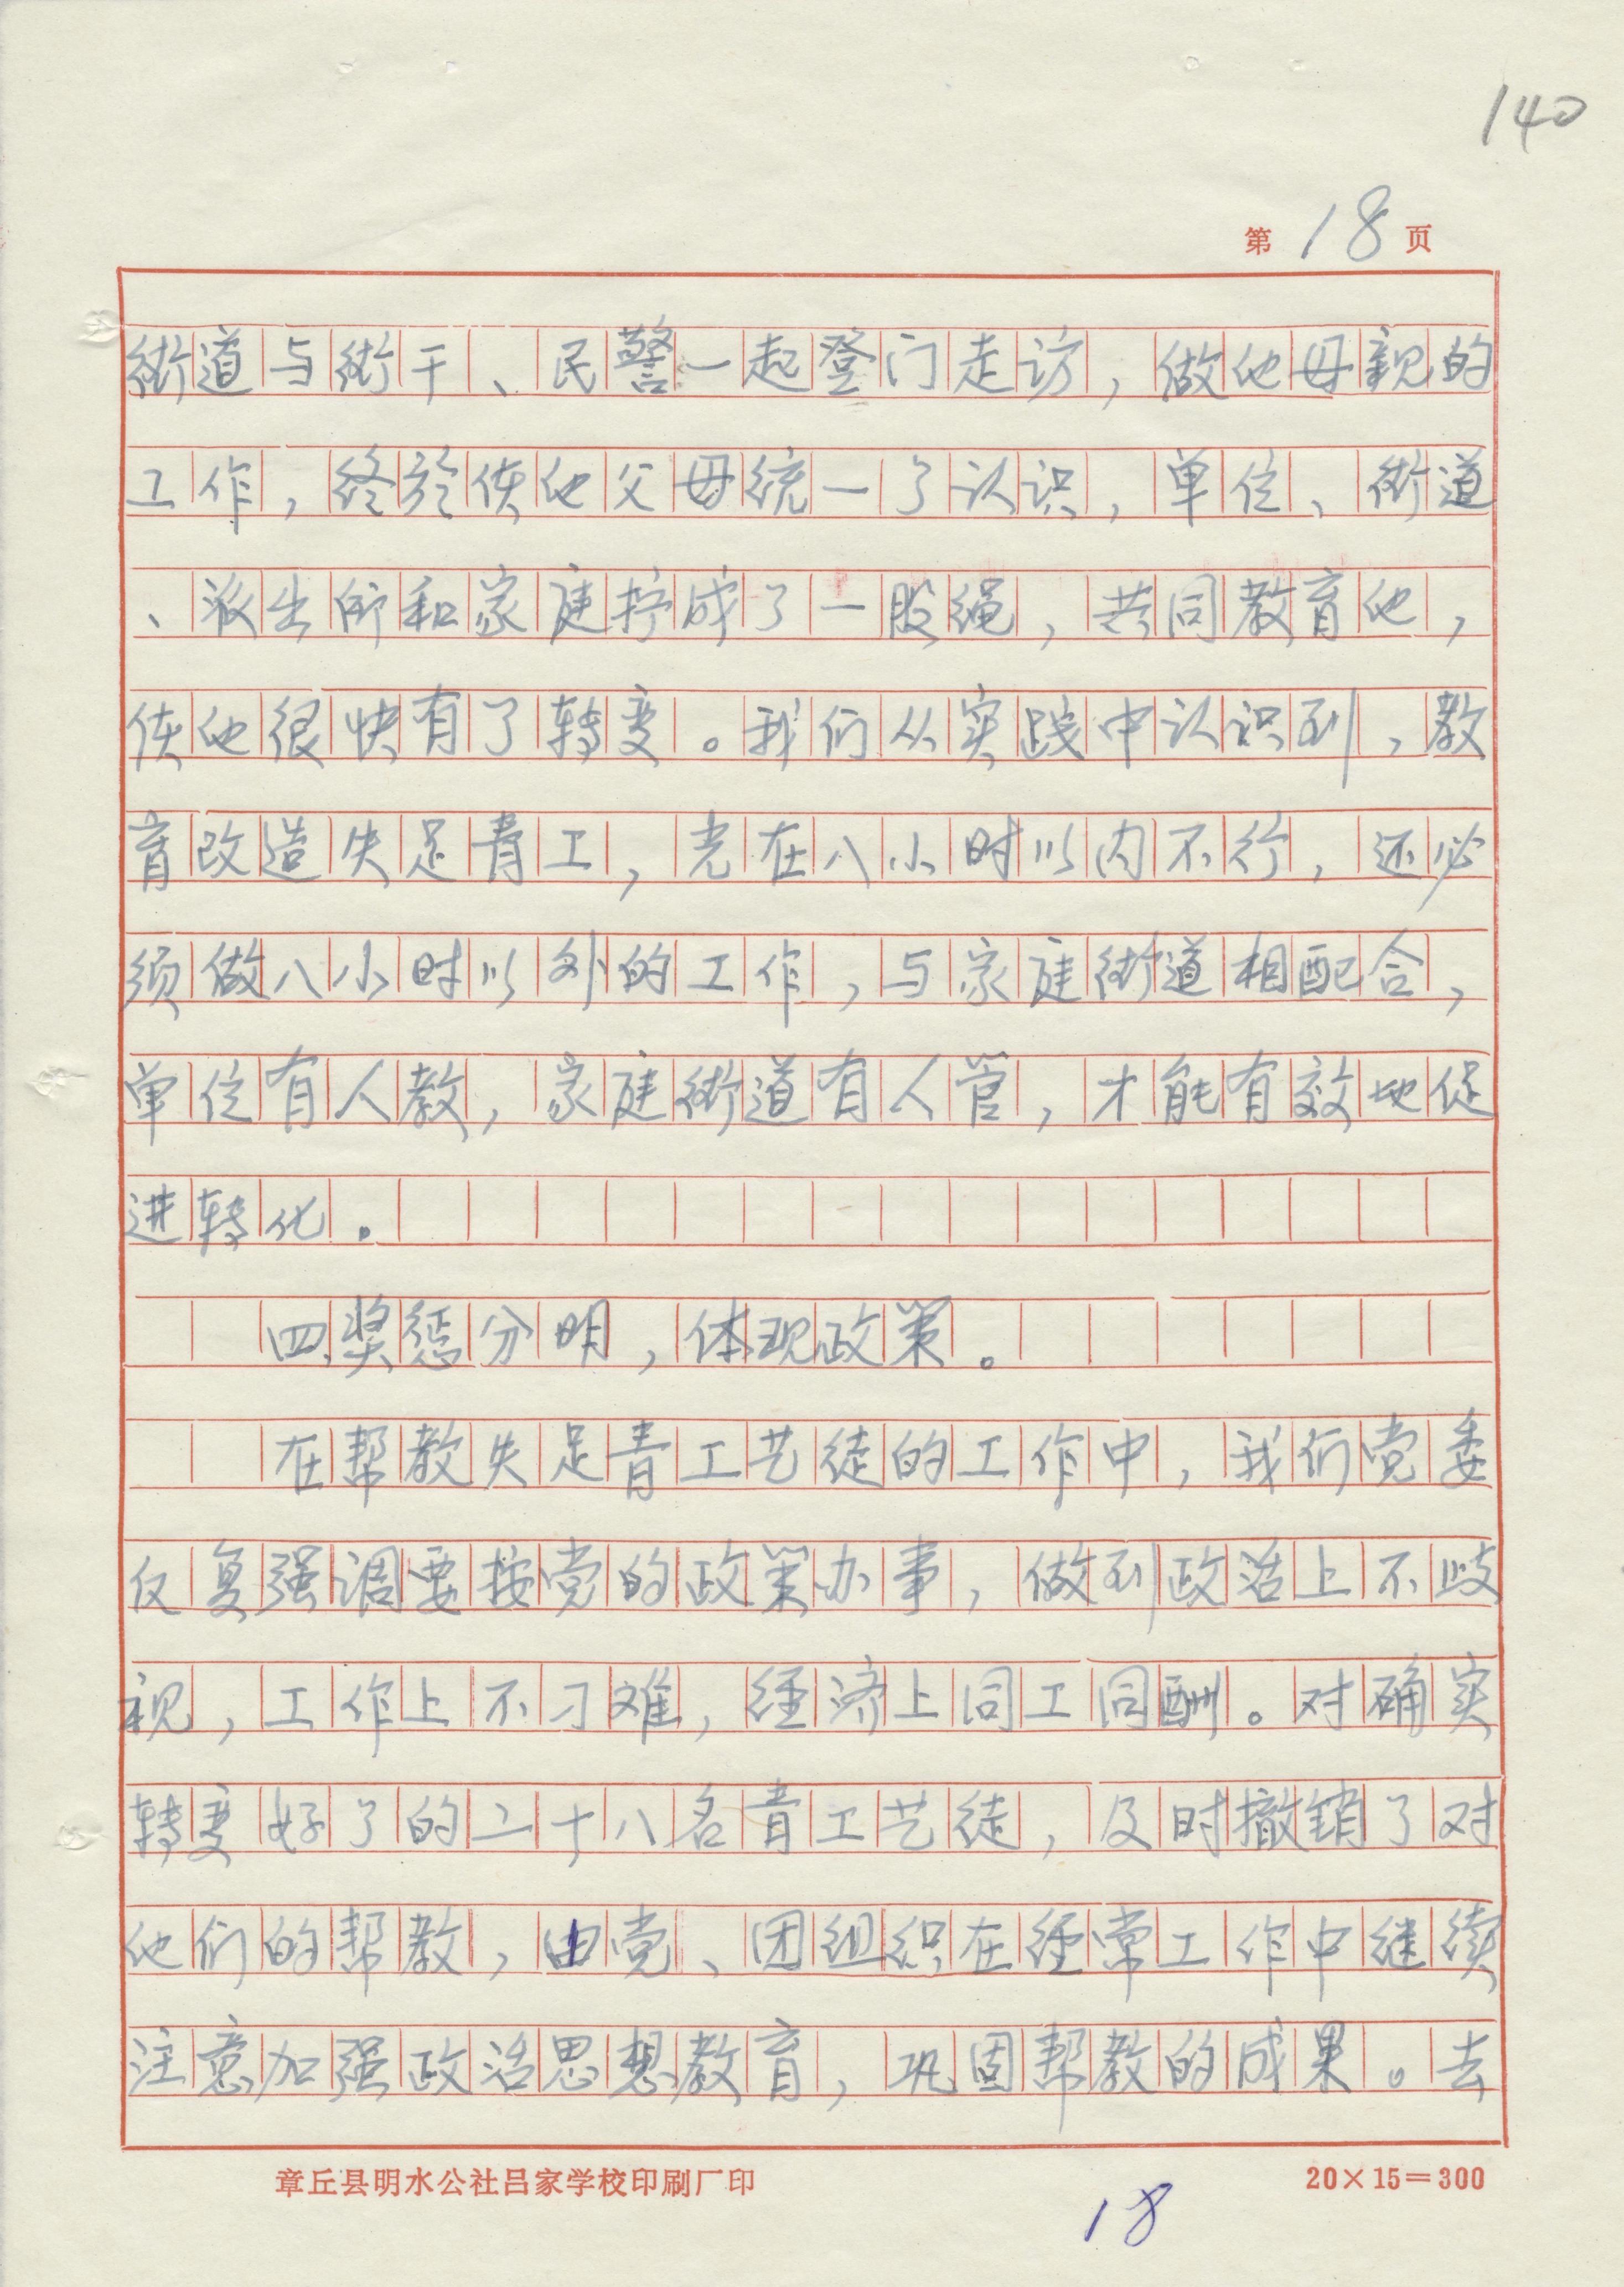 140
第 18 页
街道与街干、民警一起登门走访，做他母亲的
工作，终於使他父母统一了认识，单位、街道
、派出所和家庭拧成了一股绳，共同教育他，
使他很快有了转变。我们从实践中认识到，教
育改造失足青工，光在八小时以内不行，还必
须做八小时以外的工作，与家庭街道相配合，
单位有人教，家庭街道有人管，才能有效地促
进转化。
四、奖惩分明，体现政策。
在帮教失足青工艺徒的工作中，我们党委
反复强调要按党的政策办事，做到政治上不歧
视，工作上不刁难，经济上同工同酬。对确实
转变好了的二十八名青工艺徒，及时撤销了对
他们的帮教，由党、团组织在经常工作中继续
注意加强政治思想教育，巩固帮教的成果。去
章丘县明水公社吕家学校印刷厂印
20×15=300
18